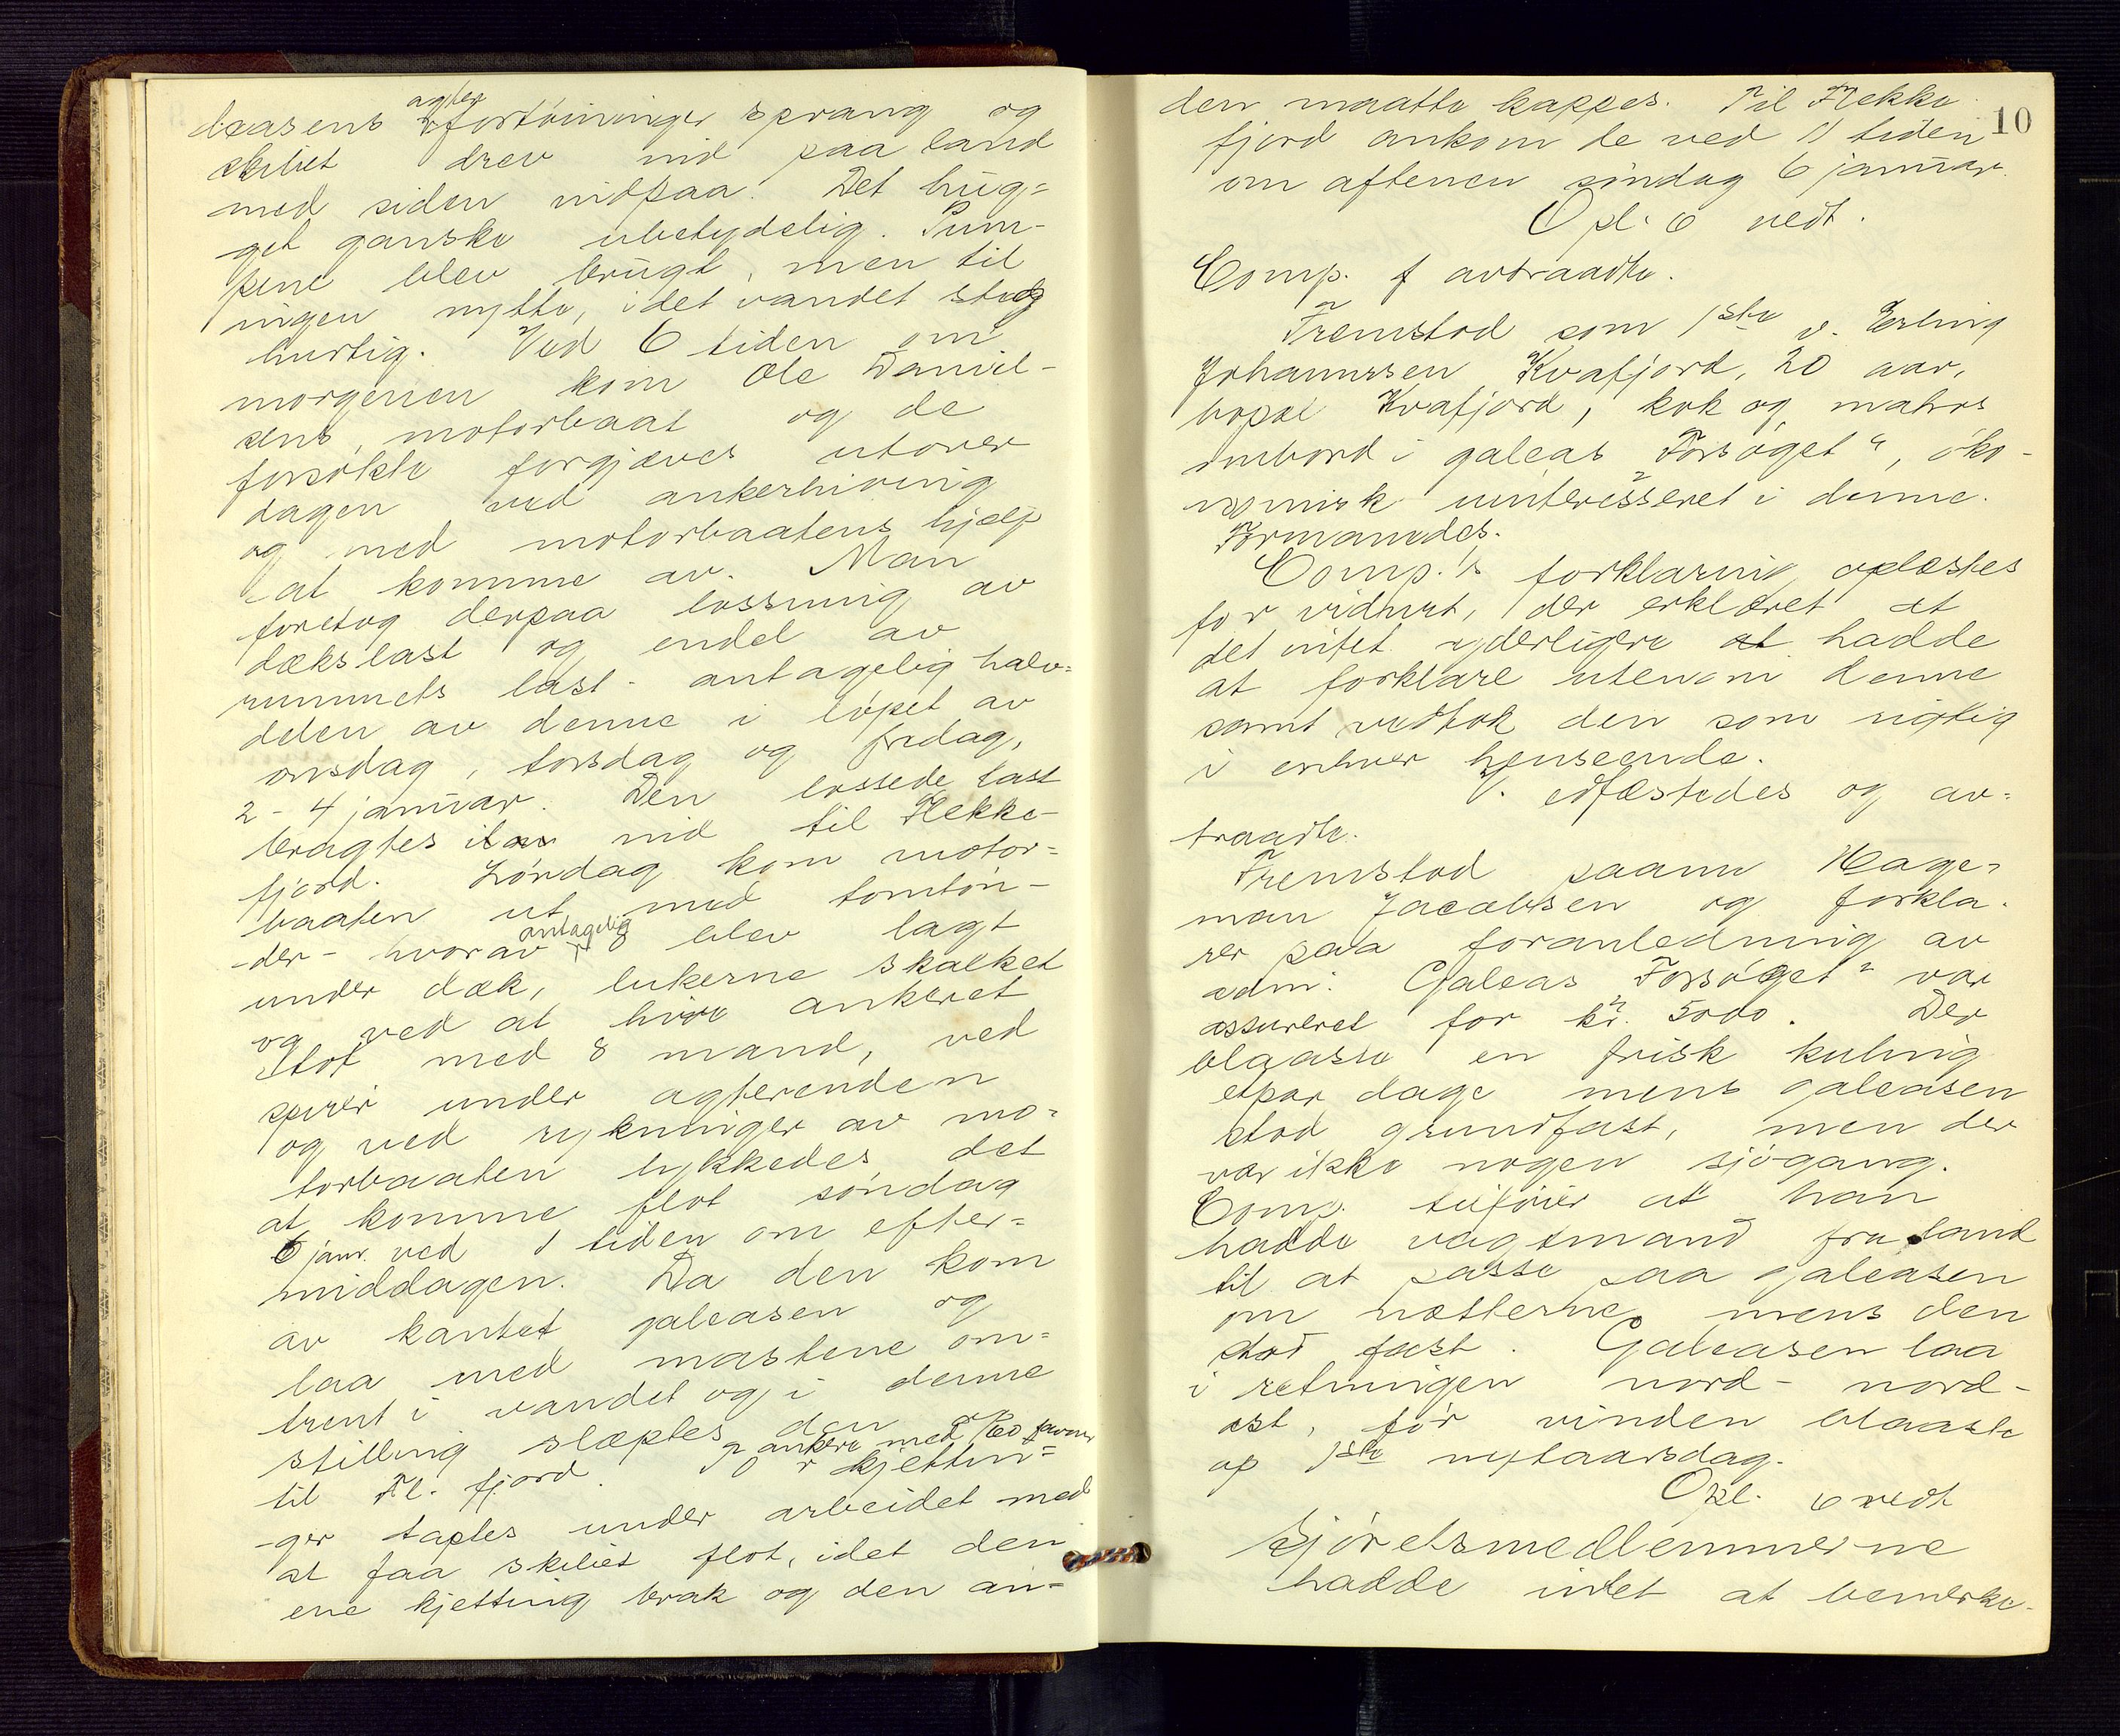 leasens agter fortøininger sprang og
skibet drev ind paa land
med siden indpaa. Det hug-
get ganske ubetydelig. Pum-
pene blev brugt, men til
ingen nytte, idet vandet steg
hurtig. Ved 6 tiden om
morgenen kom Ole Daniel-
sens, motorbaat og de
forsøkte forgjæves utover
dagen ved ankerhiving
og med motorbaatens hjælp
at komme av. Man
foretog derpaa lossning av
dækslast og endel av
rummets last - antagelig halv-
delen av denne i løpet av
onsdag, torsdag og fredag,
2 - 4 januar. Den lossede last
bragtes ind til Flekke-
fjord. Lørdag kom motor-
baaten ut med tomtøn-
der - hvorav antagelig 8 blev lagt
under dæk, lukerne skalket
og ved at hive ankeret
flot med 8 mand, ved
spirer under agterenden
og ved rykninger av mo-
torbaaten lykkedes det
at komme flot søndag
6 janr. ved 1 tiden om efter-
middagen. Da den kom
av kantet galeasen og
laa med mastene om-
trent i vandet og i denne
stilling slæptes den
til Fl. fjord. 2 ankere med 60 favner kjettin-
ger taptes under arbeidet med
at faa skibet flot, idet den
ene kjetting brak og den an-
10
den maatte kappes. Til Flekke
fjord ankom de ved 11 tiden
om aftenen søndag 6 januar.
Opl. o vedt.
Comp. f avtraadte.
Fremstod som 1ste v. Erling
Johannssen Kvafjord, 20 aar,
bopæl Kvafjord, kok og matros
ombord i galeas "Forsøget", øko-
nomisk uinteresseret i denne.
Formanedes.
Comp.'s forklaring oplæstes
for vidnet, der erklæret at
det intet yderligere at hadde
at forklare utenom denne
samt vedtok den som rigtig
i enhver henseende.
V. edfæstedes og av-
traadte.
Fremstod paany Hage-
man Jacobsen og forkla-
rer paa foranledning av
adm: Galeas "Forsøget" var
assureret for kr. 5000. Der
blaaste en frisk kuling
etpar dage mens galeasen
stod grundfast, men der
var ikke nogen sjøgang.
Comp. tilføier at han
hadde vagtmand fra land
til at passe paa galeasen
om nætterne, mens den
stod fast. Galeasen laa
i retningen nord - nord-
ost, før vinden blaaste
op 1ste nytaarsdag.
Opl. o vedt
Sjøretsmedlemmerne
hadde intet at bemerke.